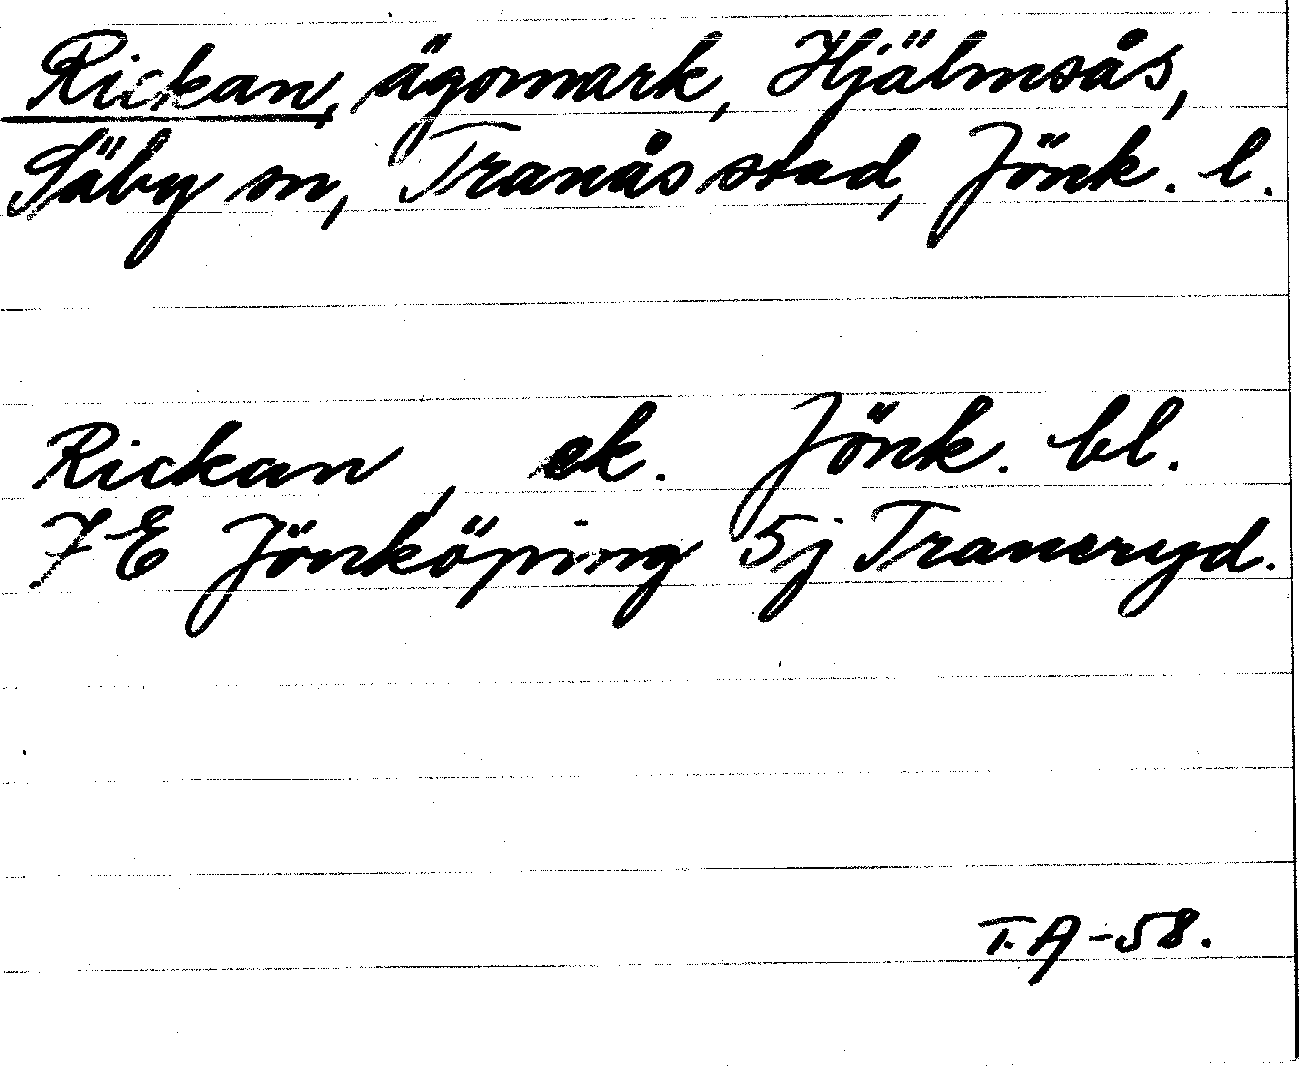 Rickan, ägomark, Hjälmsås,
Säby sn, Tranås stad, Jönk. l.
Rickan, ek. Jönk. bl.
7E Jönköping 5j Traneryd.
T.A-58.